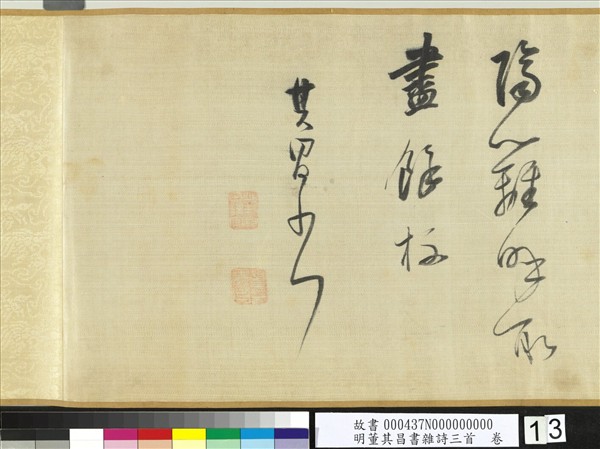 隔籬呼取
盡餘杯
其昌
故書 000437N000000000
明董其昌書雜詩三首 卷
13